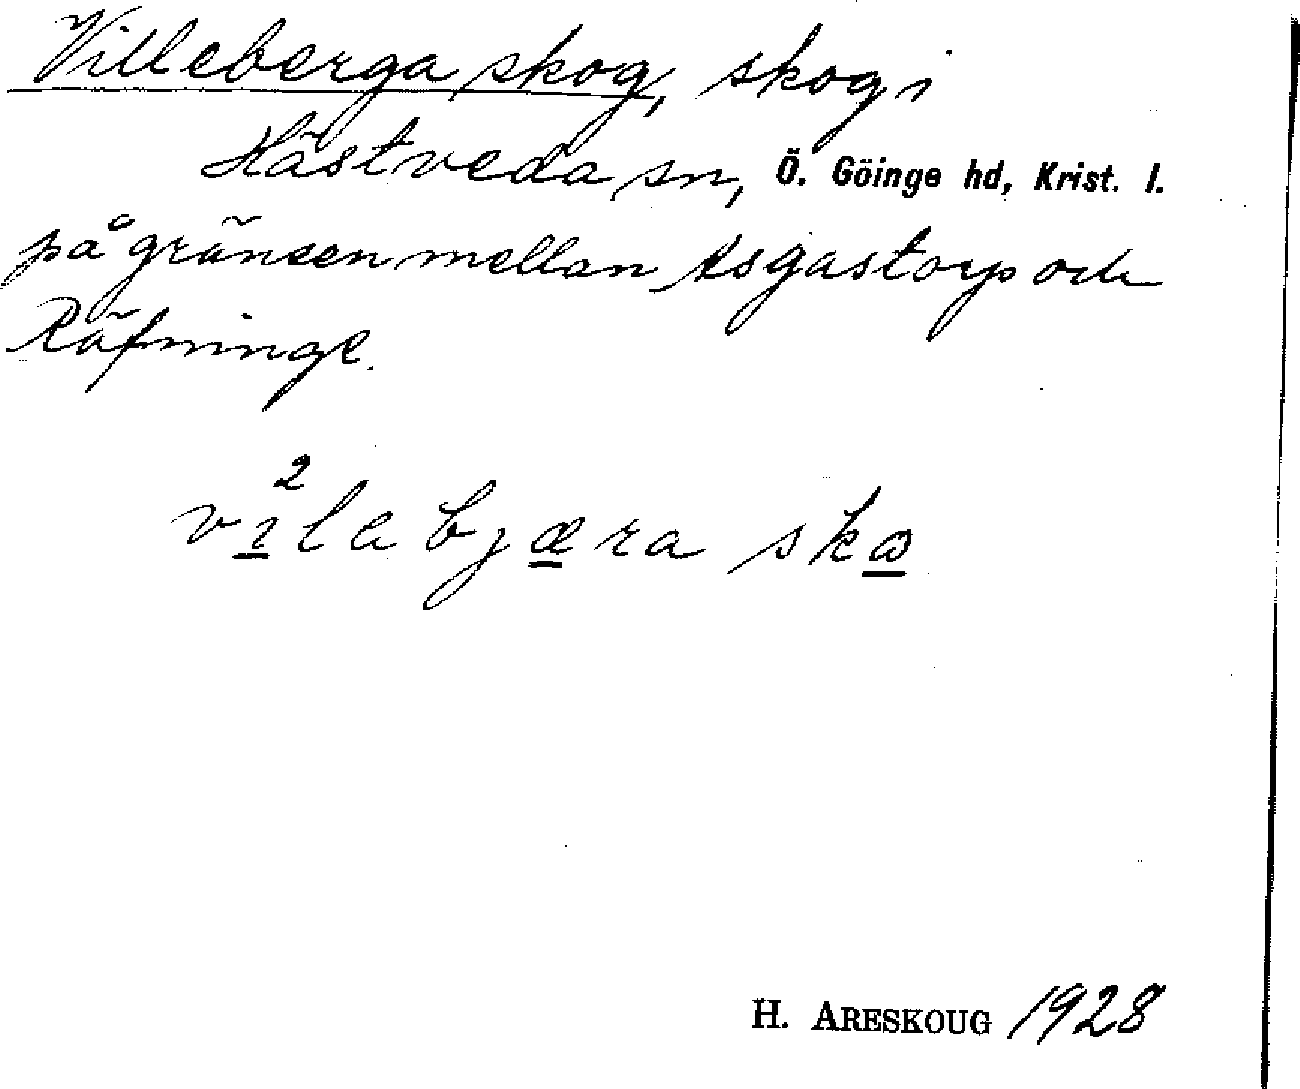 Villeberga skog, skog i
Hästveda sn, Ö. Göinge hd, Krist. l.
på gränsen mellan Asgastorp och
Räfninge.
vı²la bjæra skɷ
H. ARESKOUG 1928